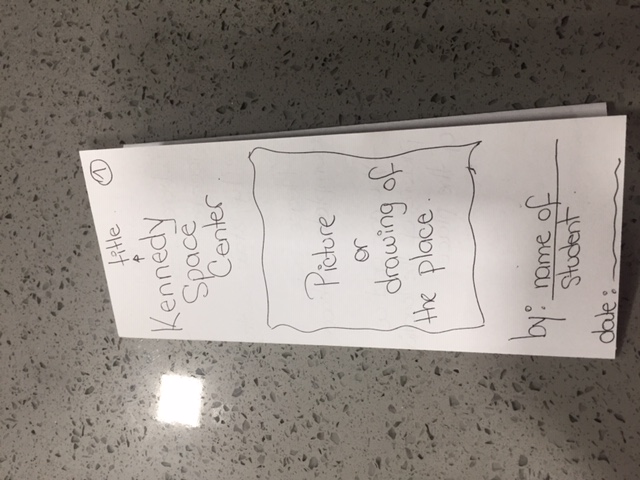 1
title
Kennedy
Space
Center
Picture
or
drawing of
the place.
by: name of
student
date: